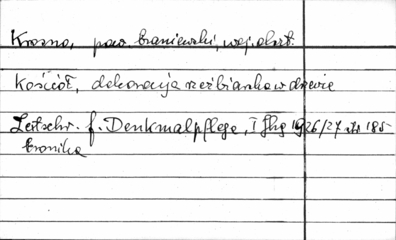 Krosno, pow. braniewski, woj. olszt.
Kościół, dekoracja rzeźbiarska w drewnie
Zeitschr. f. Denkmalpflege, I Jhg 1926/27 str 185
kronika